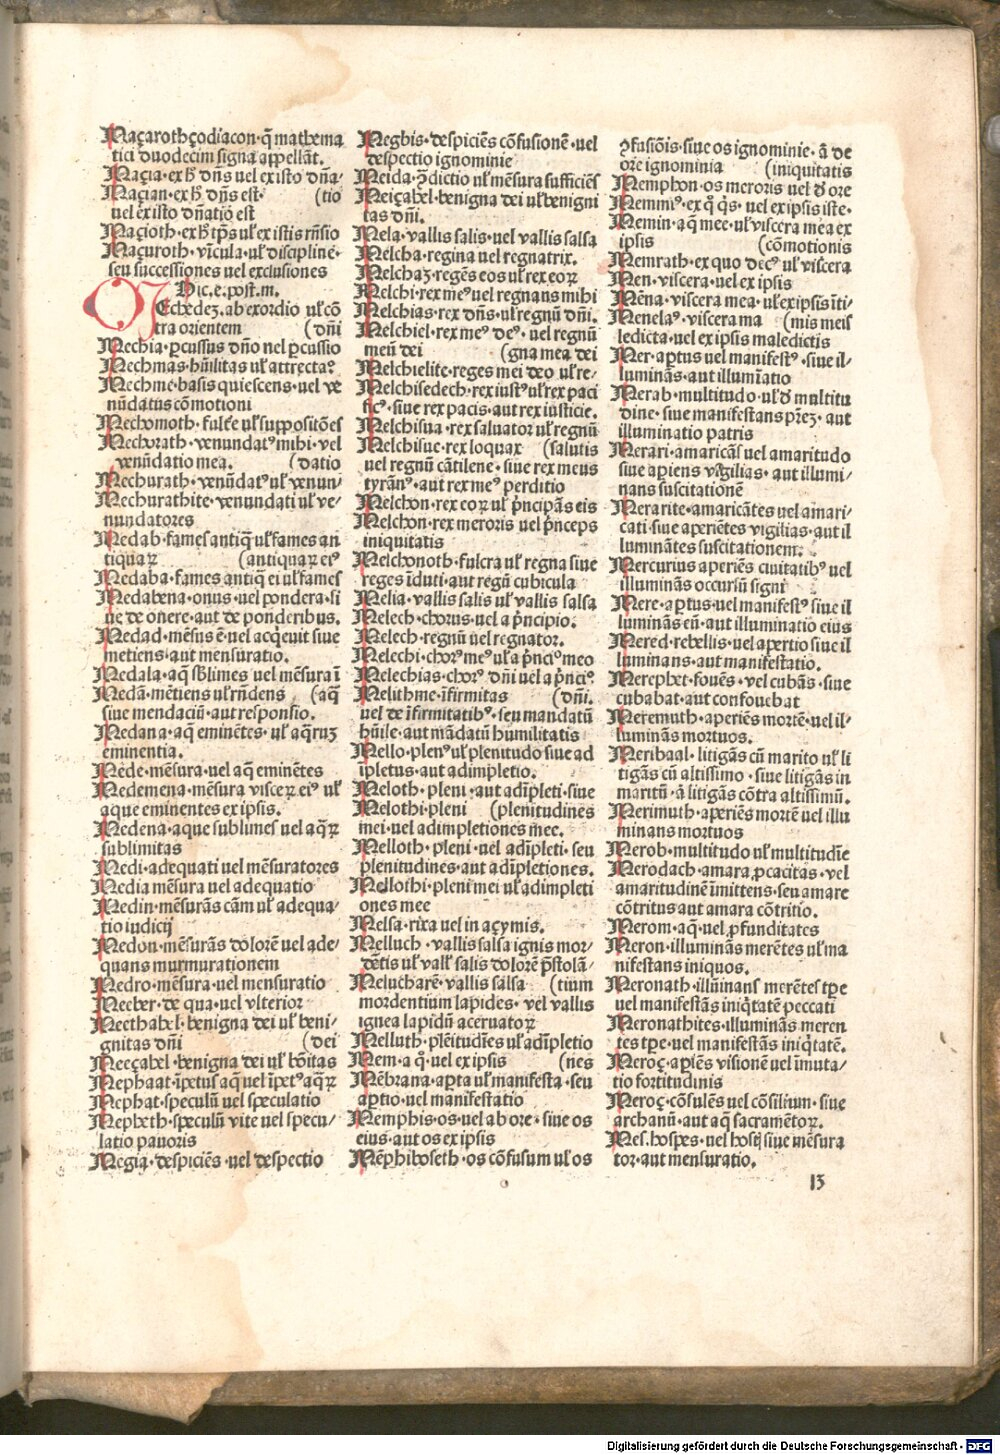 Maçaroth çodiacon· q̃ mathema
tici duodecim signa appellãt.
Maçia· ex ħ dñs uel ex isto dña/
Maçian· ex ħ dñs est· (tio
uel ex isto dñatiõ est
Maçioth· ex ħ tp̃s ul̛ ex istis rñsio
Maçuroth· vĩcula· ul̛ discipline·
seu successiones uel exclusiones
Hic .e. post .m.
MEchedeʒ. ab exordio ul̛ cõ
tra orientem (dñi
Mechia· ꝑcussus dño uel ꝑcussio
Mechmas· hũilitas ul̛ attrecta⁊
Mechme· basis quiescens· uel ve
nũdatus cõmotioni
Mechomoth· fulcre ul̛ suppositiões
Mechorath· venundat⁹ mihi· vel
venũdatio mea. (datio
Mechurath· venũdat⁹ ul̛ venun/
Mechurathite· venundati ul̛ ve/
nundatores
Medab· fames antiq̃ ul̛ fames an
tiquaꝝ (antiquaꝝ ei⁹
Medaba· fames antiq̃ ei ul̛ fames
Medabena· onus· uel pondera· si
ue de onere· aut de ponderibus.
Medad· mẽsus ẽ· uel acq̃euit siue
metiens· aut mensuratio.
Medala· aq̃ sb̃limes uel mẽsura ĩ
Medã· mẽtiens ul̛ rñdens (aq̃
siue mendaciũ· aut responsio.
Medana· aq̃ eminẽtes· ul̛ aq̃ruʒ
eminentia.
Mede· mẽsura· uel aq̃ eminẽtes
Medemena· mẽsura visceꝝ ei⁹ ul̛
aque eminentes ex ipsis.
Medena· aque sublimes uel aq̃ꝝ
sublimitas
Medi· adequati uel mẽsuratores
Media mẽsura uel adequatio
Medin· mẽsurãs cãm ul̛ adequa/
tio iudicij
Medon· mẽsurãs dolorẽ uel ade/
quans murmurationem
Medro· mẽsura· uel mensuratio
Meeber· de qua· uel vlterior
Meethabel· benigna dei ul̛ beni/
gnitas dñi (dei
Meeçabel· benigna dei ul̛ bõitas
Mephaat· ĩpetus aq̃ uel ĩpet⁹ aq̃ꝝ
Mephat· speculũ uel speculatio
Mepheth· speculũ vite uel specu/
latio pauoris
Megia· despiciẽs· uel despectio
Meghis· despiciẽs cõfusionẽ· uel
despectio ignominie
Meida· ꝯdictio ul̛ mẽsura sufficiẽs
Meiçabel· benigna dei ul̛ benigni
tas dñi.
Mela· vallis salis· uel vallis salsa
Melcha· regina uel regnatrix.
Melchaʒ· regẽs eos ul̛ rex eoꝝ
Melchi· rex me⁹ uel regnans mihi
Melchias· rex dñs· ul̛ regnũ dñi.
Melchiel· rex me⁹ de⁹· uel regnũ
meũ dei (gna mea dei
Melchielite· reges mei deo ul̛ re/
Melchisedech· rex iust⁹ ul̛ rex paci
fic⁹· siue rex pacis· aut rex iusticie.
Melchisua· rex saluator ul̛ regnũ
Melchisue· rex loquax (salutis
uel regnũ cãtilene· siue rex meus
tyrãn⁹· aut rex me⁹ perditio
Melchon· rex eoꝝ ul̛ p̃ncipãs eis
Melchon· rex meroris uel p̃nceps
iniquitatis
Melchonoth· fulcra ul̛ regna siue
reges ĩduti· aut regũ cubicula
Melia· vallis salis ul̛ vallis salsa
Melech· chorus· uel a p̃ncipio.
Melech· regnũ uel regnator.
Melechi· chor⁹ me⁹ ul̛ a p̃nci⁰ meo
Melechias· chor⁹ dñi uel a p̃nci⁰
Melithme· ĩfirmitas (dñi.
uel de ĩfirmitatib⁹· seu mandatũ
hũile· aut mãdatũ humilitatis
Mello· plen⁹ ul̛ plenitudo siue ad
ĩpletus· aut adimpletio.
Meloth· pleni· aut adĩpleti· siue
Melothi· pleni (plenitudines
mei· uel adimpletiones mee.
Melloth· pleni· uel adĩpleti· seu
plenitudines· aut adĩpletiones.
Mellothi· pleni mei ul̛ adimpleti
ones mee
Melsa· rixa uel in açymis.
Melluch· vallis salsa ignis mor/
dẽtis ul̛ vall̛ salis dolorẽ p̃stolã/
Melucharẽ· vallis salsa (tium
mordentium lapides· vel vallis
ignea lapidũ aceruatoꝝ
Melluth· plẽitudĩes ul̛ adĩpletio
Mem· a q̃· uel ex ipsis (nes
Mẽbrana· aꝑta ul̛ manifesta· seu
aꝑtio· uel manifestatio
Memphis· os· uel ab ore· siue os
eius· aut os ex ipsis
Mẽphiboseth· os cõfusum ul̛ os
ꝯfusiõis· siue os ignominie· ã de
ore ignominia (iniquitatis
Memphon· os meroris uel đ ore
Memmi⁹· ex q̃ q̃s· uel ex ipsis iste·
Memin· aq̃ mee· ul̛ viscera mea ex
ipsis (cõmotionis
Memrath· ex quo dec⁹ ul̛ viscera
Men· viscera· uel ex ipsis
Mẽna· viscera mea· ul̛ ex ipsis ĩti/
Menela⁹· viscera ma (mis meis
ledicta· uel ex ipsis maledictis
Mer· aꝑtus uel manifest⁹· siue il/
luminãs· aut illumĩatio
Merab· multitudo· ul̛ đ multitu
dine· siue manifestans p̃reʒ· aut
illuminatio patris
Merari· amaricãs uel amaritudo
siue aꝑiens vigilias· aut illumi/
nans suscitationẽ
Merarite· amaricãtes uel amari/
cati· siue aperiẽtes vigilias· aut il
luminãtes suscitationem.
Mercurius aperiẽs ciuitatib⁹ uel
illuminãs occursũ signi
Mere· aꝑtus· uel manifest⁹ siue il
luminãs eũ· aut illuminatio eius
Mered· rebellis· uel apertio siue il
luminans· aut manifestatio.
Merephet· fouẽs· vel cubãs· siue
cubabat· aut confouebat
Meremuth· aperiẽs mortẽ· uel il/
luminãs mortuos.
Meribaal· litigãs cũ marito ul̛ li
tigãs cũ altissimo· siue litigãs in
maritũ· ã litigãs cõtra altissimũ.
Merimuth· aperiẽs mortẽ uel illu
minans mortuos
Merob· multitudo ul̛ multitudĩe
Merodach· amara ꝓcacitas· vel
amaritudinẽ ĩmittens· seu amare
cõtritus aut amara cõtritio.
Merom· aq̃· uel ꝓfunditates
Meron· illuminãs merẽtes ul̛ ma
nifestans iniquos.
Meronath· illũinans merẽtes tp̃e
uel manifestãs iniq̃tatẽ peccati
Meronathites· illuminãs meren
tes tp̃e· uel manifestãs iniq̃tatẽ.
Meroç· aꝑiẽs visionẽ uel ĩmuta/
tio fortitudinis
Meroç· cõsulẽs uel cõsilium· siue
archanũ· aut aq̃ sacramẽtoꝝ.
Mes· hospes· uel hostĩ siue mẽsura
tor· aut mensuratio.
13
Digitalisierung gefördert durch die Deutsche Forschungsgemeinschaft - DFG